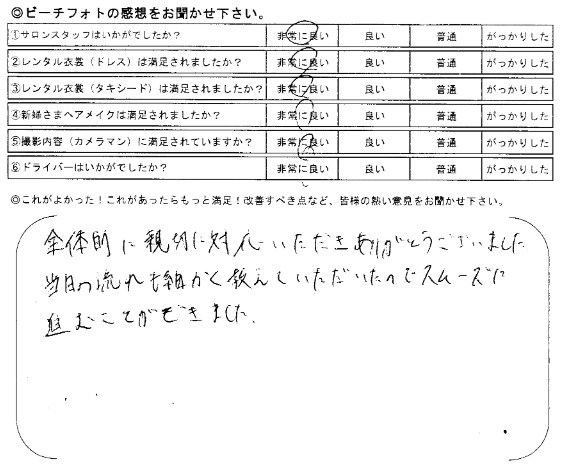 ◎ビーチフォトの感想をお聞かせ下さい。
①サロンスタッフはいかがでしたか？ 非常に良い 良い 普通 がっかりした
②レンタル衣裳（ドレス）は満足されましたか？ 非常に良い 良い 普通 がっかりした
③レンタル衣裳（タキシード）は満足されましたか？ 非常に良い 良い 普通 がっかりした
④新婦さまヘアメイクは満足されましたか？ 非常に良い 良い 普通 がっかりした
⑤撮影内容（カメラマン）に満足されていますか？ 非常に良い 良い 普通 がっかりした
⑥ドライバーはいかがでしたか？ 非常に良い 良い 普通 がっかりした
◎これがよかった！これがあったらもっと満足！改善すべき点など、皆様の熱い意見をお聞かせ下さい。
全体的に親切に対応いただきありがとうございました
当日の流れも細かく教えていただいたのでスムーズに
進むことができました。